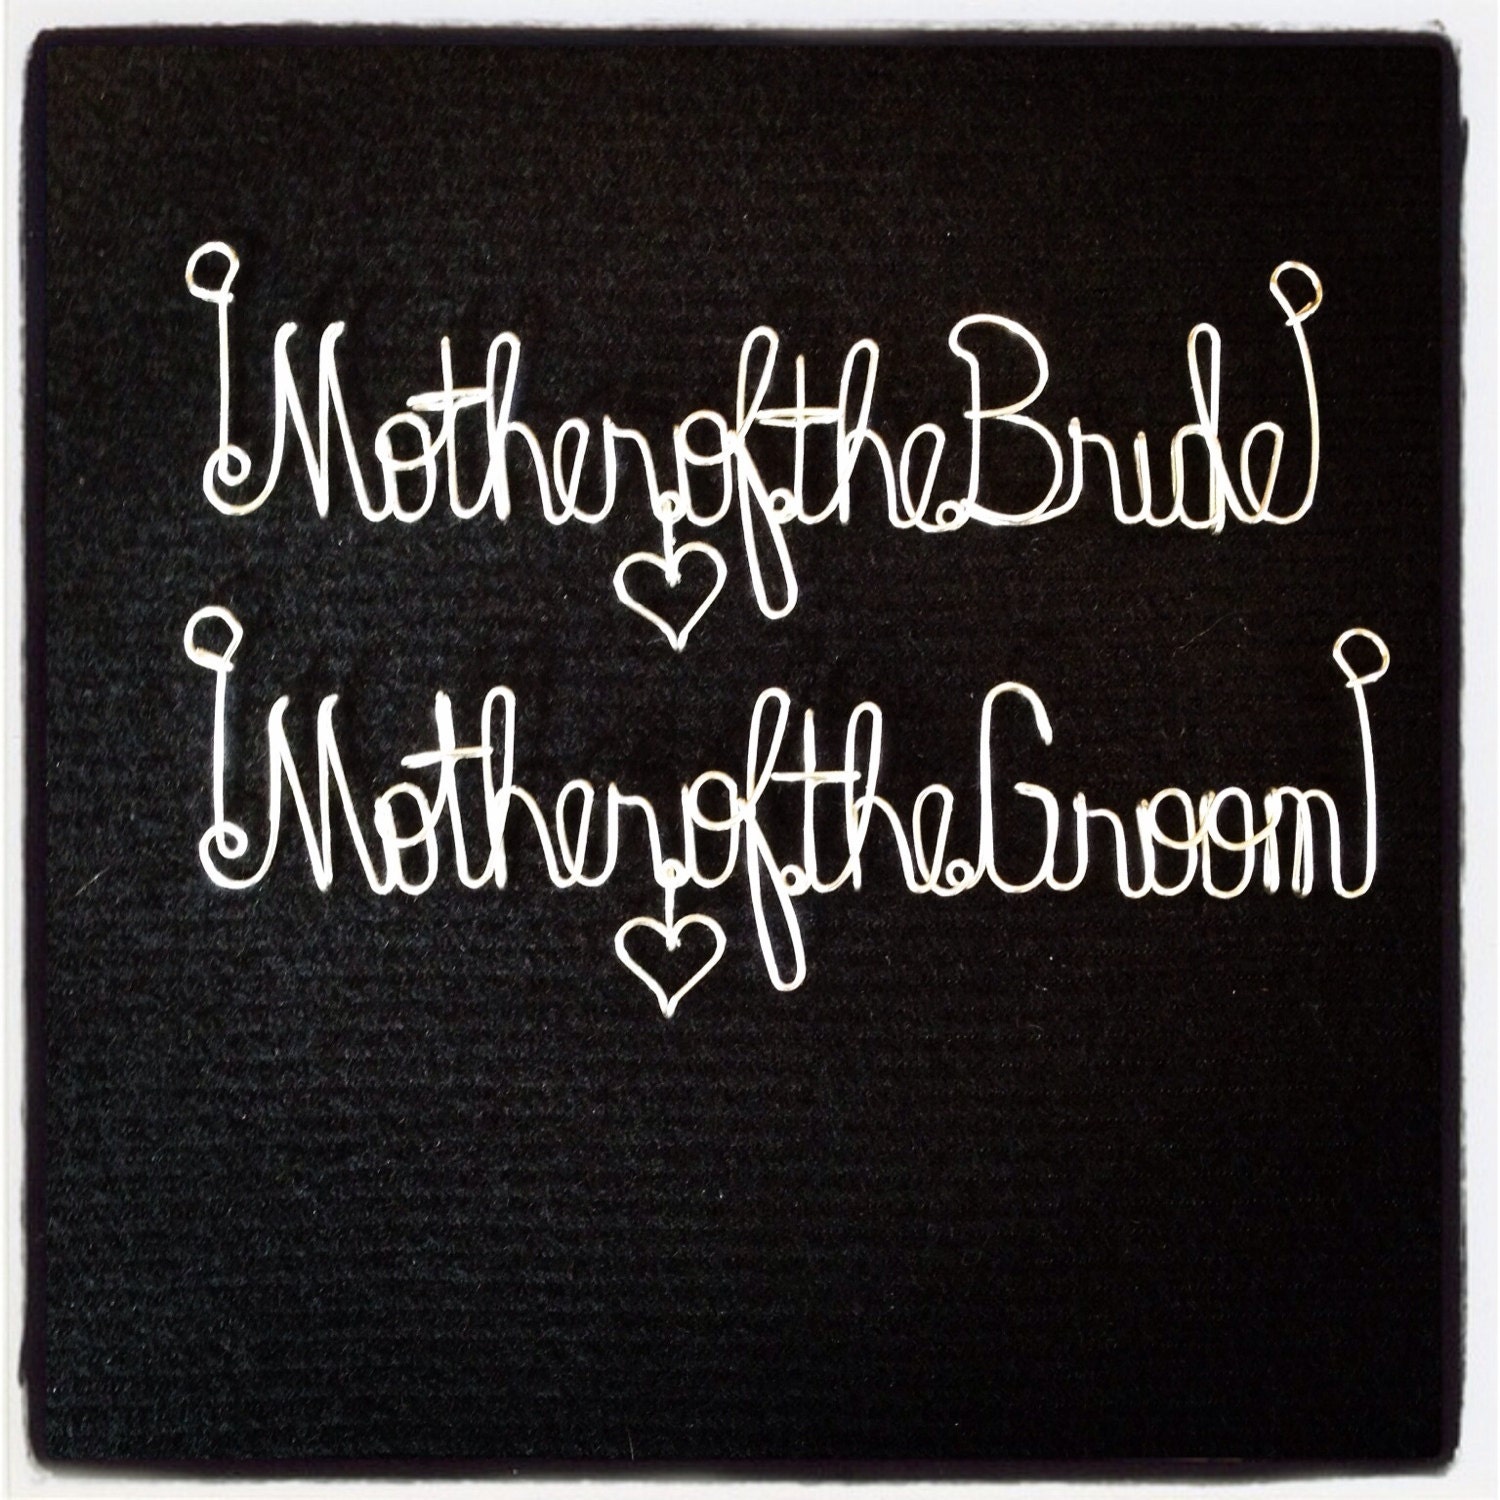 Mother of the Bride
Mother of the Groom